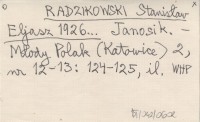 RADZIKOWSKI Stanisław
Eljasz 1926... Janosik. -
Młody Polak (Katowice) 2,
nr 12-13: 124-125, il. WHP